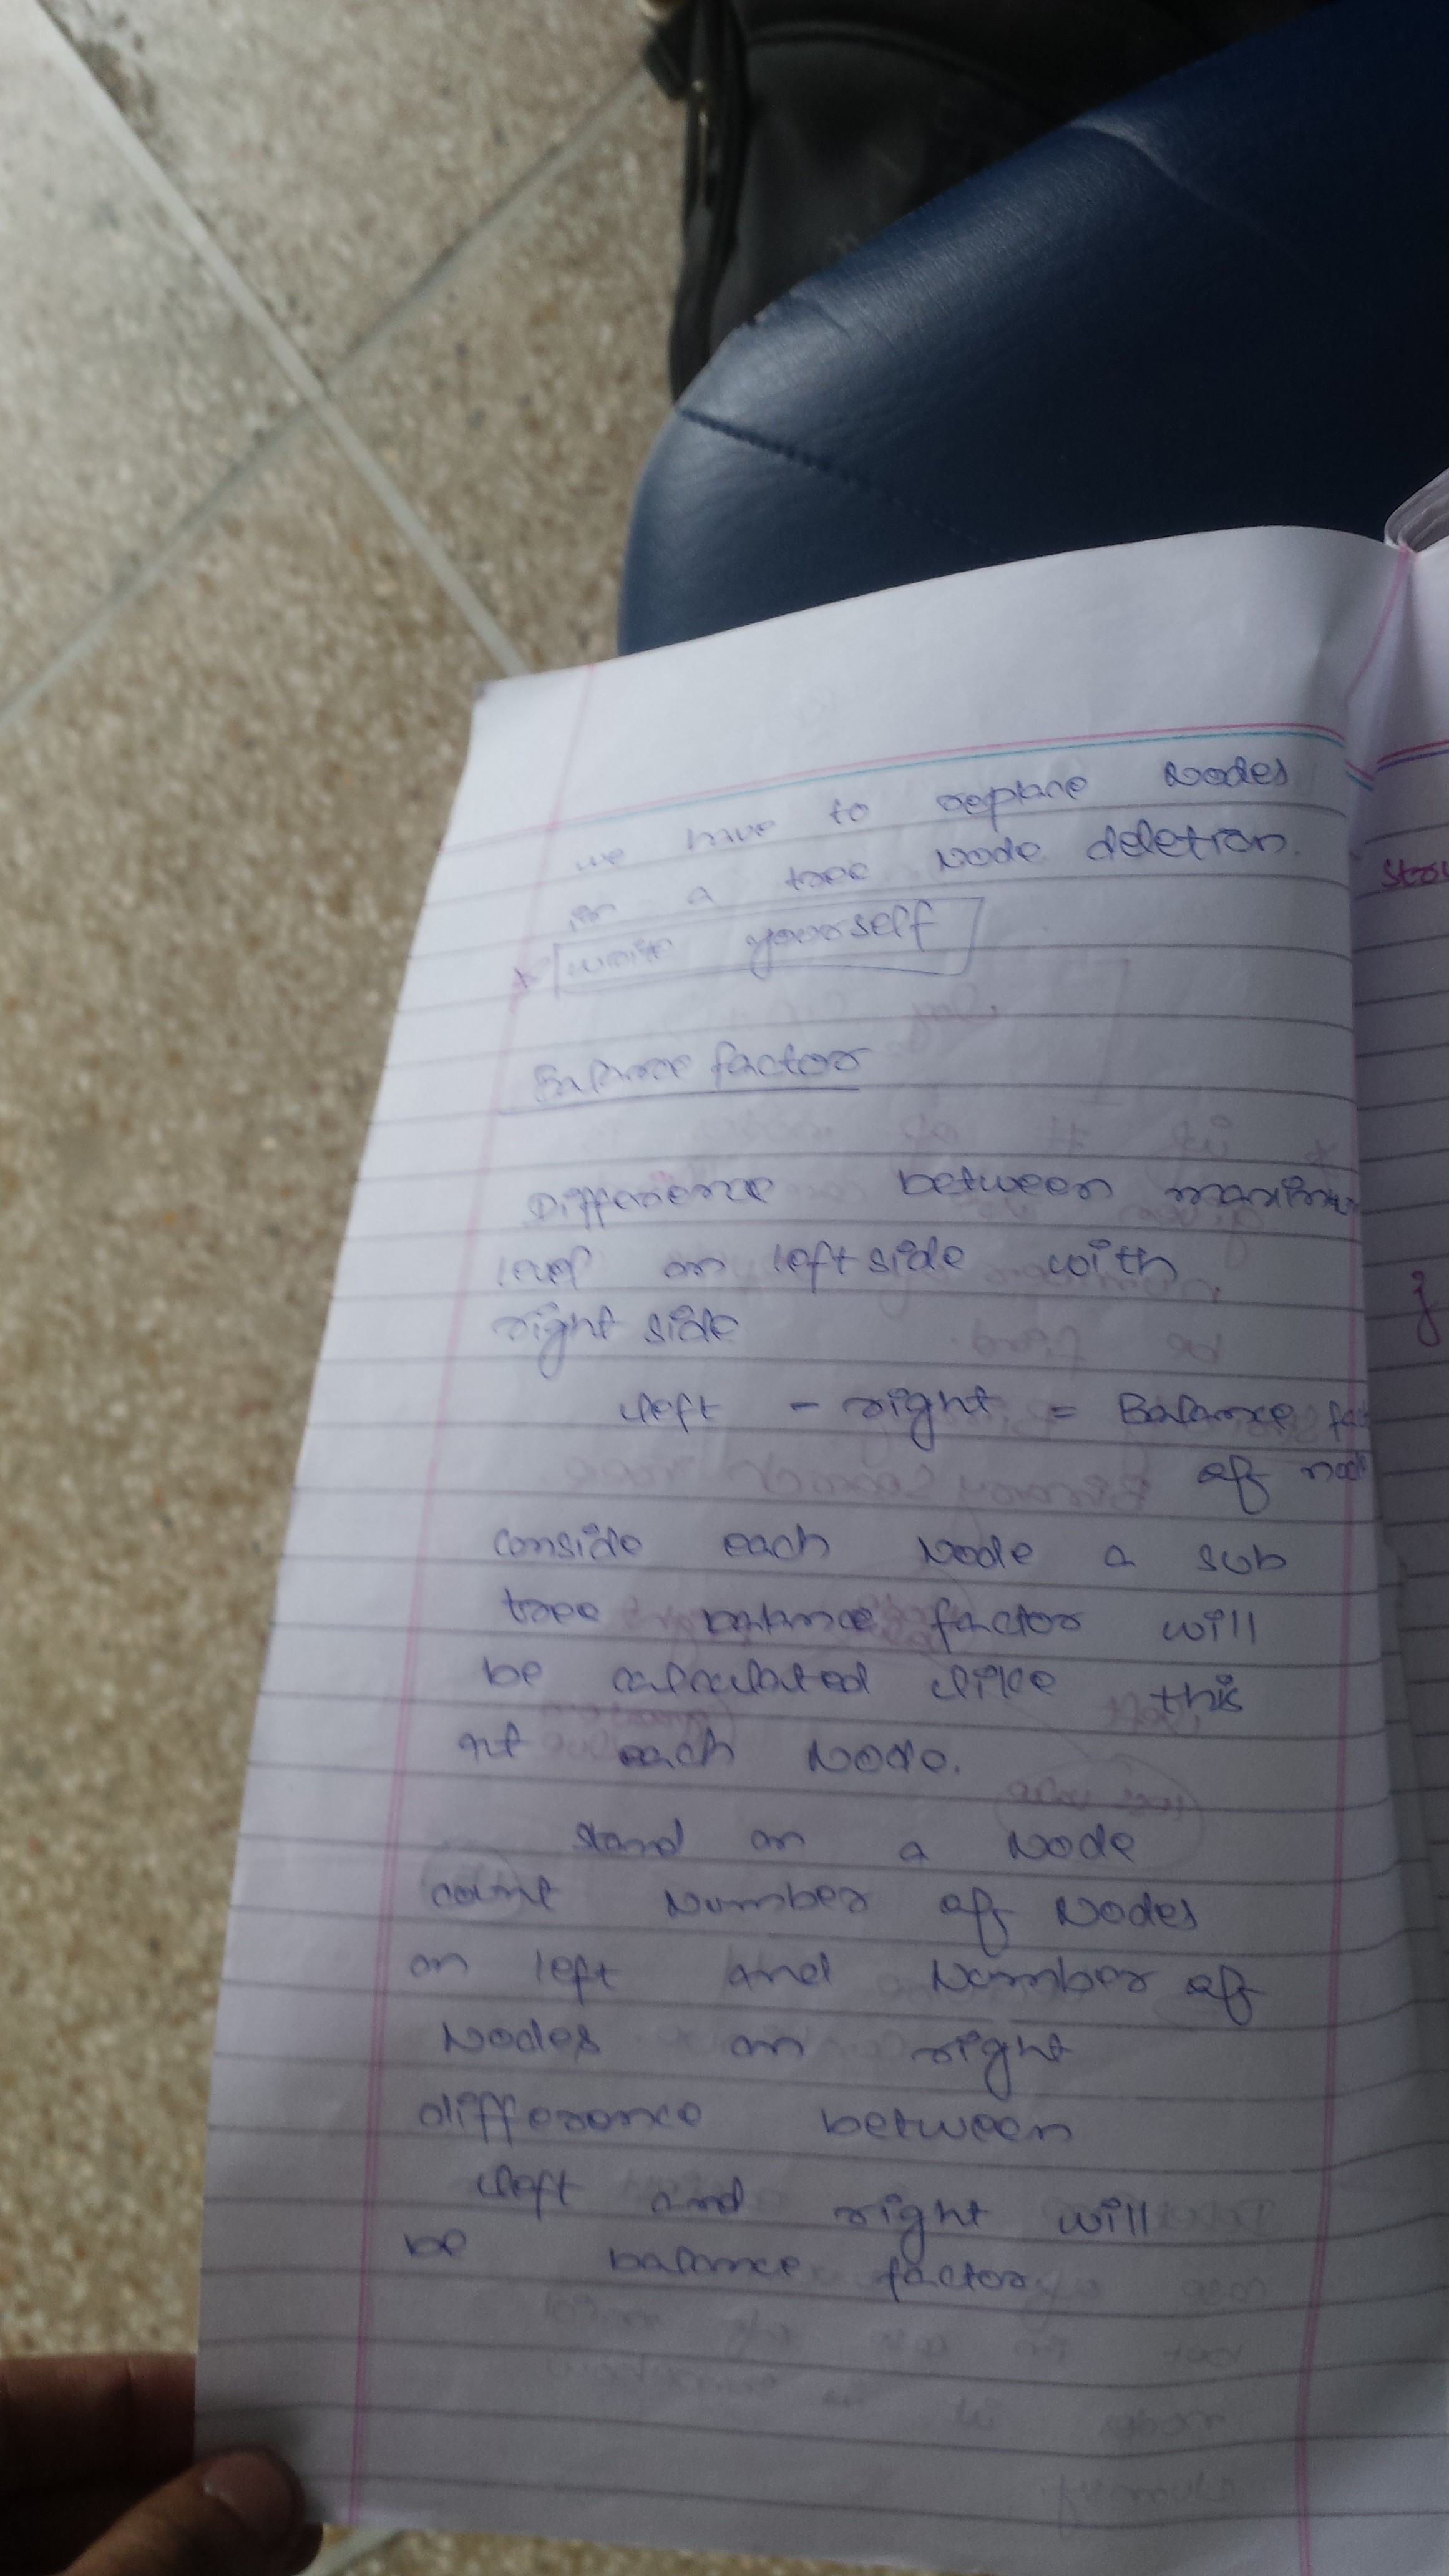 we have to replace Nodes
in a tree Node deletion.
* write yourself
Balance factor
Difference between maximu
level on left side with
right side
left - right = Balance fac
of node
conside each Node a sub
tree balance factor will
be calculated like this
at each Node.
stand on a Node
count Number of Nodes
on left and Number of
Nodes on right
difference between
left and right will
be balance factor